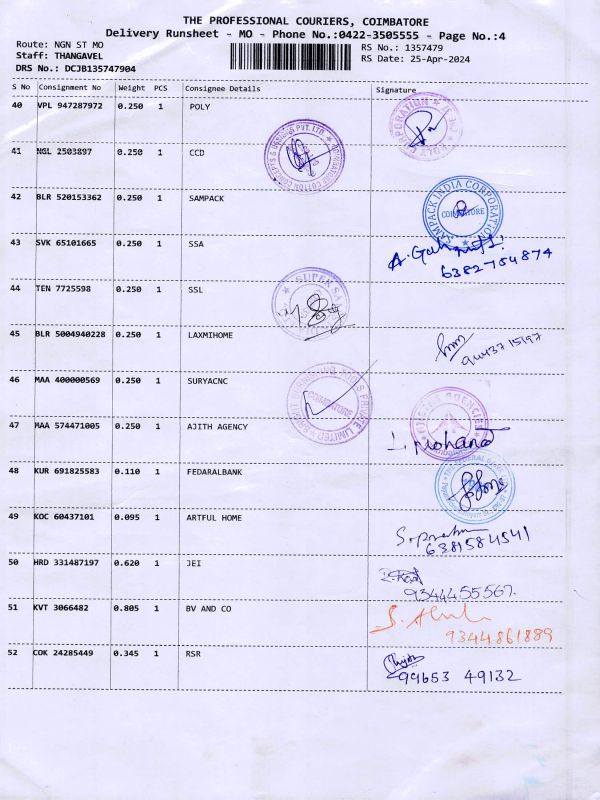 THE PROFESSIONAL COURIERS, COIMBATORE
Delivery Runsheet - MO - Phone No.:0422-3505555 - Page No.:4
Route: NGN ST MO
RS No.: 1357479
Staff: THANGAVEL
RS Date: 25-Apr-2024
DRS No.: DCJB135747904
S No Consignment No Weight PCS Consignee Details Signature
40 VPL 947287972 0.250 1 POLY
41 NGL 2503897 0.250 1 CCD
42 BLR 520153362 0.250 1 SAMPACK
SAMPACK INDIA CORPORATION
COIMBATORE
43 SVK 65101665 0.250 1 SSA
6382754874
44 TEN 7725598 0.250 1 SSL
45 BLR 5004940228 0.250 1 LAXMIHOME
46 MAA 400000569 0.250 1 SURYACNC
COIMBATORE
47 MAA 574471005 0.250 1 AJITH AGENCY
48 KUR 691825583 0.110 1 FEDARALBANK
49 KOC 60437101 0.095 1 ARTFUL HOME
6381584541
50 HRD 331487197 0.620 1 JEI
9344455567.
51 KVT 3066482 0.805 1 BV AND CO
9344861889
52 COK 24285449 0.345 1 RSR
99653 49132